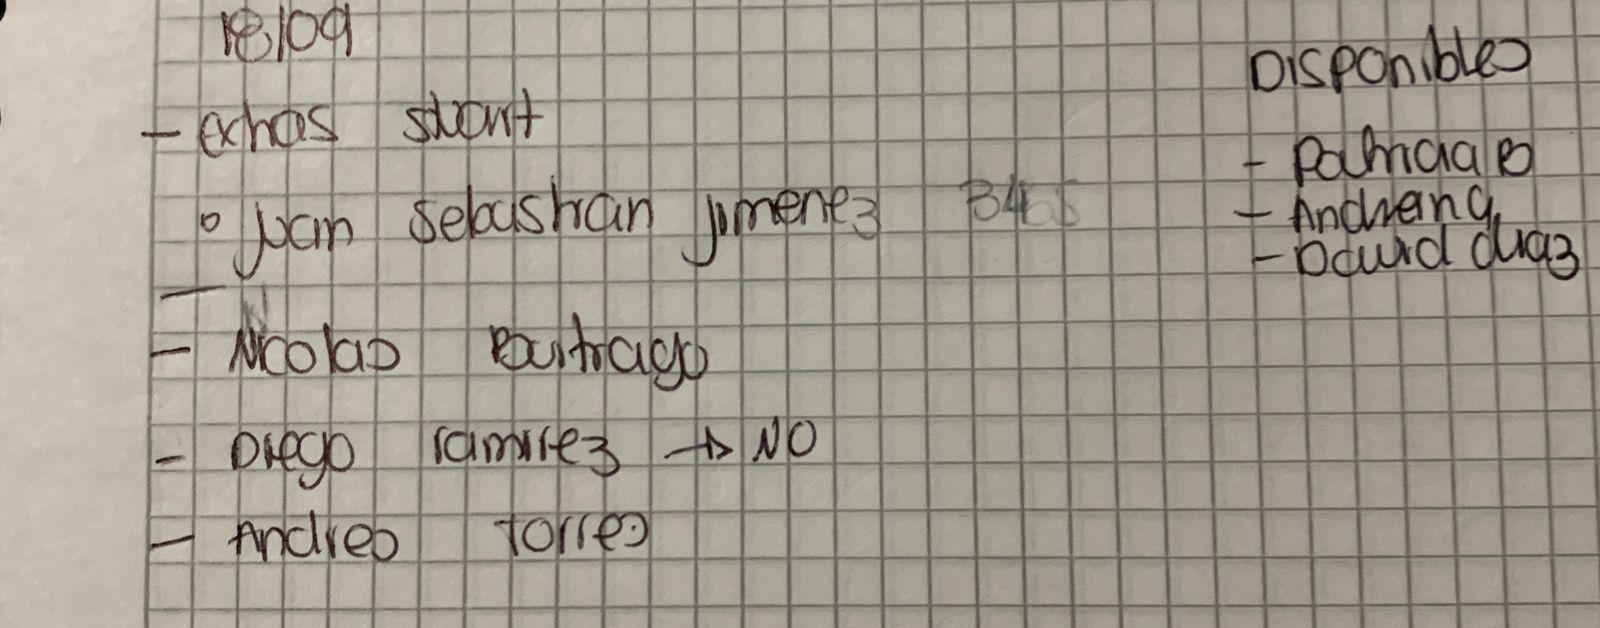 18/09
- extras start
° Juan Sebastian Jimenez
- Nicolas Buitrago
- Diego ramirez → NO
- Andres Torres
Disponibles
- Patricia B
- Andrea G
- David diaz